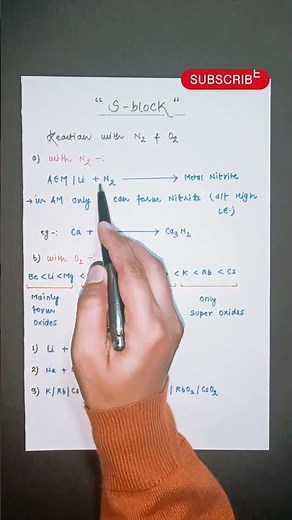 SUBSCRIBE
"S-block"
Reaction with N₂ & O₂
a) with N₂ -:
AEM | Li + N₂ → Metal Nitrite
→ in AM only can form Nitrite (d/t High I.E.)
eg-: Ca + → Ca₃N₂
b) with O₂ -:
Be < Li < Mg < < K < Rb < Cs
Mainly form oxides
Only Super oxides
1) Li +
2) Na +
3) K/Rb/Cs / RbO₂ / CsO₂